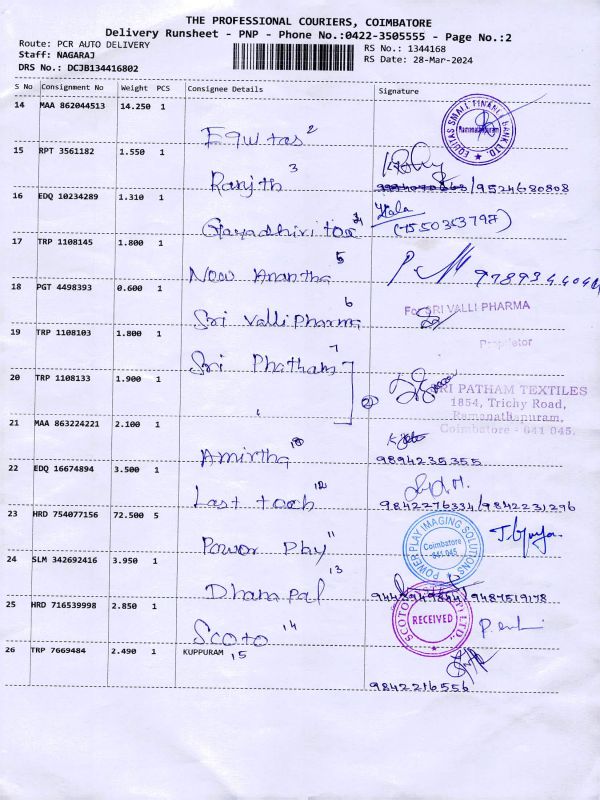 THE PROFESSIONAL COURIERS, COIMBATORE
Delivery Runsheet - PNP - Phone No.:0422-3505555 - Page No.:2
Route: PCR AUTO DELIVERY
RS No.: 1344168
Staff: NAGARAJ
RS Date: 28-Mar-2024
DRS No.: DCJB134416802
S No Consignment No Weight PCS Consignee Details Signature
14 MAA 862044513 14.250 1
Equitas 2
EQUITAS SMALL FINANCE BANK LTD.
Ramanathapuram
15 RPT 3561182 1.550 1
Ranjith 3
/9524680808
16 EDQ 10234289 1.310 1
(7550363797)
17 TRP 1108145 1.800 1
New Anantha 5
18 PGT 4498393 0.600 1
Sri Valli Pharma 6
For SRI VALLI PHARMA
Proprietor
19 TRP 1108103 1.800 1
Sri Phatham 7
20 TRP 1108133 1.900 1
2
SRI PATHAM TEXTILES
1854, Trichy Road,
Ramanathapuram,
Coimbatore - 641 045.
21 MAA 863224221 2.100 1
Amirtha
9894235355
22 EDQ 16674894 3.500 1
Last toch
9842276334/9842231296
23 HRD 754077156 72.500 5
Power Play 11
POWER PLAY IMAGING SOLUTIONS
Coimbatore
641 045
24 SLM 342692416 3.950 1
Dhanapal 13
/9487519178
25 HRD 716539998 2.850 1
Scoto 14
RECEIVED
26 TRP 7669484 2.490 1 KUPPURAM 15
9842216556